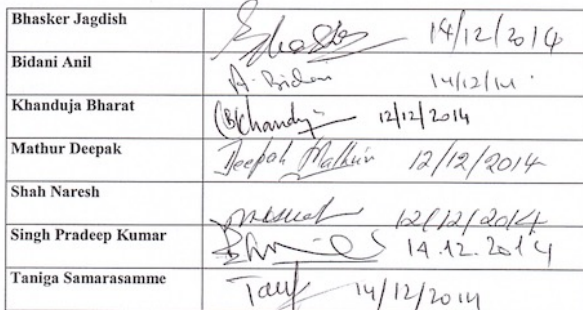 Bhasker Jagdish 14/12/2014
Bidani Anil A. Bidani 14/12/14
Khanduja Bharat (B)Khanduja 12/12/2014
Mathur Deepak Deepak Mathur 12/12/2014
Shah Naresh 12/12/2014
Singh Pradeep Kumar 14.12.2014
Taniga Samarasamme 14/12/2014